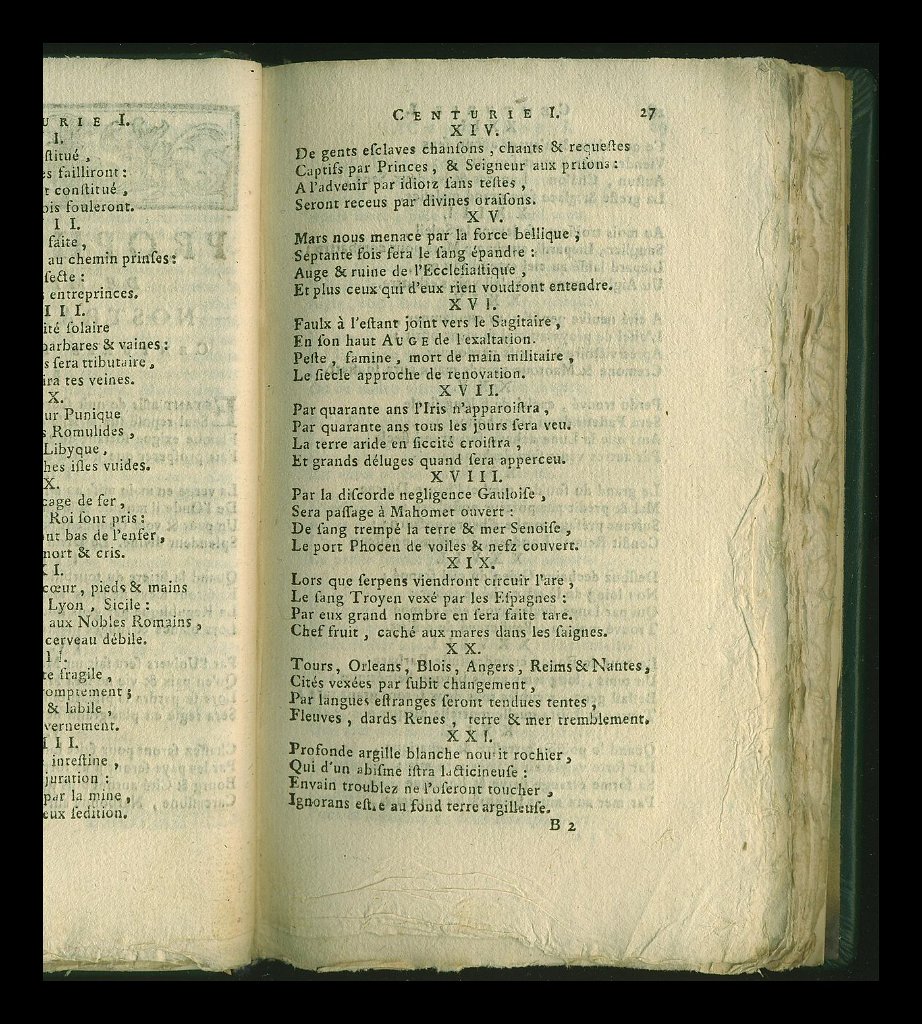 URIE I.
I.
ſtitué ,
es failliront :
t conſtitué ,
ois fouleront.
II.
faite ,
au chemin prinſes :
ſecte :
entreprinces.
III.
ité ſolaire
barbares & vaines :
s ſera tributaire ,
ira tes veines.
X.
ur Punique
s Romulides ,
Libyque ,
hes iſles vuides.
X.
cage de fer ,
Roi ſont pris :
ut bas de l'enfer ,
mort & cris.
I.
cœur , pieds & mains
Lyon , Sicile :
aux Nobles Romains ,
cerveau débile.
II.
te fragile ,
romptement ;
& labile ,
vernement.
III.
inteſtine ,
juration :
par la mine ,
eux ſédition.
CENTURIE I. 27
XIV.
De gents eſclaves chanſons , chants & requeſtes
Captifs par Princes , & Seigneur aux priſons :
A l'advenir par idiotz ſans teſtes ,
Seront receus par divines oraiſons.
XV.
Mars nous menace par la force bellique ;
Septante fois fera le ſang épandre :
Auge & ruine de l'Eccleſiaſtique ,
Et plus ceux qui d'eux rien voudront entendre.
XVI.
Faulx à l'eſtant joint vers le Sagitaire ,
En ſon haut AUGE de l'exaltation.
Peſte , famine , mort de main militaire ,
Le ſiecle approche de renovation.
XVII.
Par quarante ans l'Iris n'apparoiſtra ,
Par quarante ans tous les jours ſera veu.
La terre aride en ſiccité croiſtra ,
Et grands déluges quand ſera apperceu.
XVIII.
Par la diſcorde negligence Gauloiſe ,
Sera paſſage à Mahomet ouvert :
De ſang trempé la terre & mer Senoiſe ,
Le port Phocen de voiles & nefz couvert.
XIX.
Lors que ſerpens viendront circuir l'are ,
Le ſang Troyen vexé par les Eſpagnes :
Par eux grand nombre en ſera faite tare.
Chef fruit , caché aux mares dans les ſaignes.
XX.
Tours, Orleans, Blois, Angers, Reims & Nantes,
Cités vexées par ſubit changement ,
Par langues eſtranges ſeront tendues tentes ,
Fleuves , dards Renes , terre & mer tremblement.
XXI.
Profonde argille blanche nourrit rochier ,
Qui d'un abiſme iſtra lacticineuſe :
Envain troublez ne l'oſeront toucher ,
Ignorans eſtre au fond terre argilleuſe.
B 2